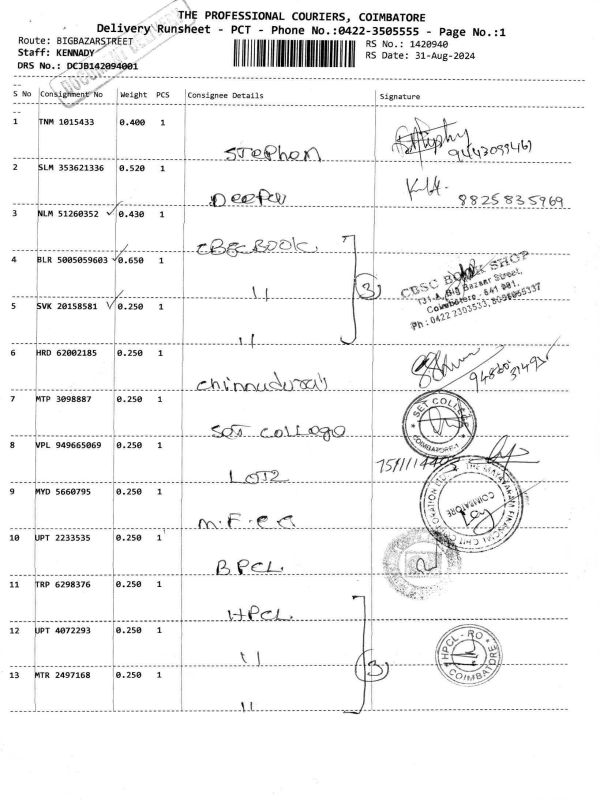 THE PROFESSIONAL COURIERS, COIMBATORE
Delivery Runsheet - PCT - Phone No.:0422-3505555 - Page No.:1
Route: BIGBAZARSTREET
RS No.: 1420940
Staff: KENNADY
RS Date: 31-Aug-2024
DRS No.: DCJB142094001
S No Consignment No Weight PCS Consignee Details Signature
1 TNM 1015433 0.400 1
Stephen
9443099461
2 SLM 353621336 0.520 1
Deepa
8825835969
3 NLM 51260352 ✓ 0.430 1
CBSC BOOK.
4 BLR 5005059603 ✓ 0.650 1
〃
3
CBSC BOOK SHOP
131-A, Big Bazaar Street,
Coimbatore - 641 001.
Ph : 0422 2303533, 8098055337
5 SVK 20158581 ✓ 0.250 1
〃
6 HRD 62002185 0.250 1
Chinnadurai
7 MTP 3098887 0.250 1
SET COLLEGE
COIMBATORE-1
Set College
8 VPL 949665069 0.250 1
LOT2
9 MYD 5660795 0.250 1
COIMBATORE
M.F.C.C
10 UPT 2233535 0.250 1
BPCL
11 TRP 6298376 0.250 1
HPCL
12 UPT 4072293 0.250 1
〃
3
HPCL - RO
COIMBATORE
13 MTR 2497168 0.250 1
〃